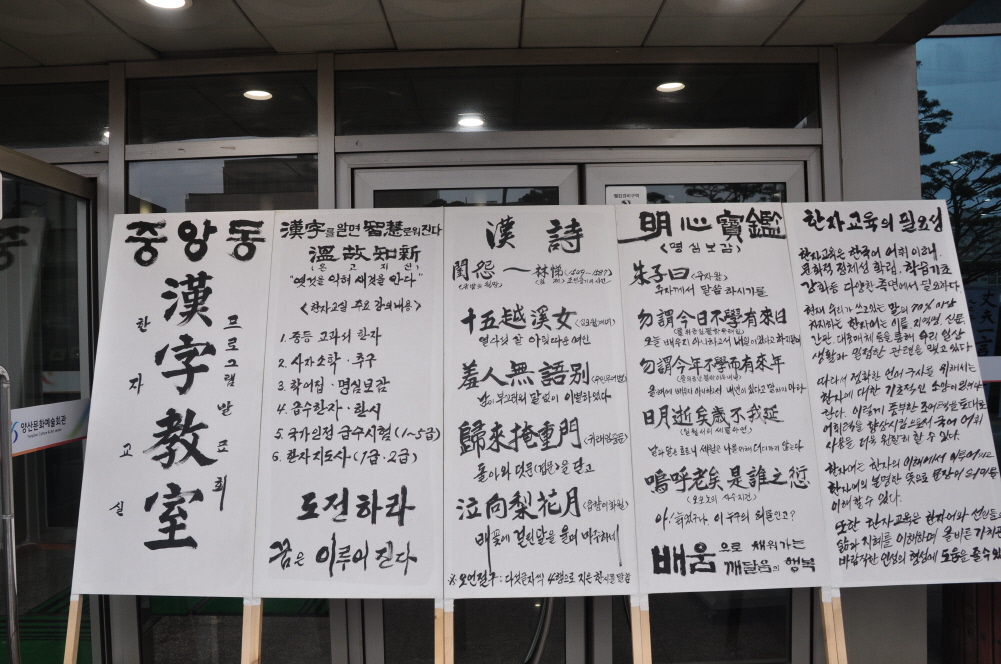 중앙동
漢字教室
한자교실
프로그램발표회
漢字를 알면 智慧로워진다
溫故知新
(온고지신)
"옛것을 익혀 새것을 안다"
<한자교실 주요 강의내용>
1. 중등 교과서 한자
2. 사자소학 · 추구
3. 학어집 · 명심보감
4. 급수한자 · 한시
5. 국가인정 급수시험 (1~5급)
6. 한자지도사 (1급·2급)
도전하라
꿈은 이루어 진다
漢詩
閨怨 - 林悌
十五越溪女
열다섯살 아릿따운 여인
羞人無語別
남이 부끄러워 말없이 이별하였다
歸來掩重門
돌아와 덧문(겹문)을 닫고
泣向梨花月
배꽃에 걸린 달을 울며 마주하네
※ 오언절구 : 다섯글자씩 4행으로 지은 한시를 말함
明心寶鑑
(명심보감)
朱子曰
주자께서 말씀 하시기를
勿謂今日不學有來日
오늘 배우지 아니하고서 내일이 있다고 하지말며
勿謂今年不學而有來年
올해에 배우지 아니하고서 내년이 있다고 말하지 마라
日月逝矣歲不我延
嗚呼老矣是誰之愆
아! 늙었구나, 이 누구의 허물인고?
배움으로 채워가는
깨달음의 행복
한자교육의 필요성
한자교육은 한국어 어휘 이해,
문화적 정체성 확립, 학습기초
강화등 다양한 측면에서 필요하다
현재 우리가 쓰고있는 말의 70% 이상
차지하는 한자어는 이름, 지역명, 신문,
간판, 대중매체 등을 통해 우리 일상
생활과 밀접한 관련을 맺고 있다
따라서 정확한 언어 구사를 위해서는
한자에 대한 기초적인 소양이
한다. 이렇게 풍부한 조어력을 토대로
어휘력을 향상시킴으로서 국어 어휘
사용을 더욱 원활히 할 수 있다.
한자어는 한자의 이해에서
한자어의 분명한 뜻으로
이해할 수 있다.
또한 한자교육은 한자어와 선현들의
삶과 지혜를 이해하며 올바른
바람직한 인성의 형성에 도움을 줄 수 있
양산문화예술회관